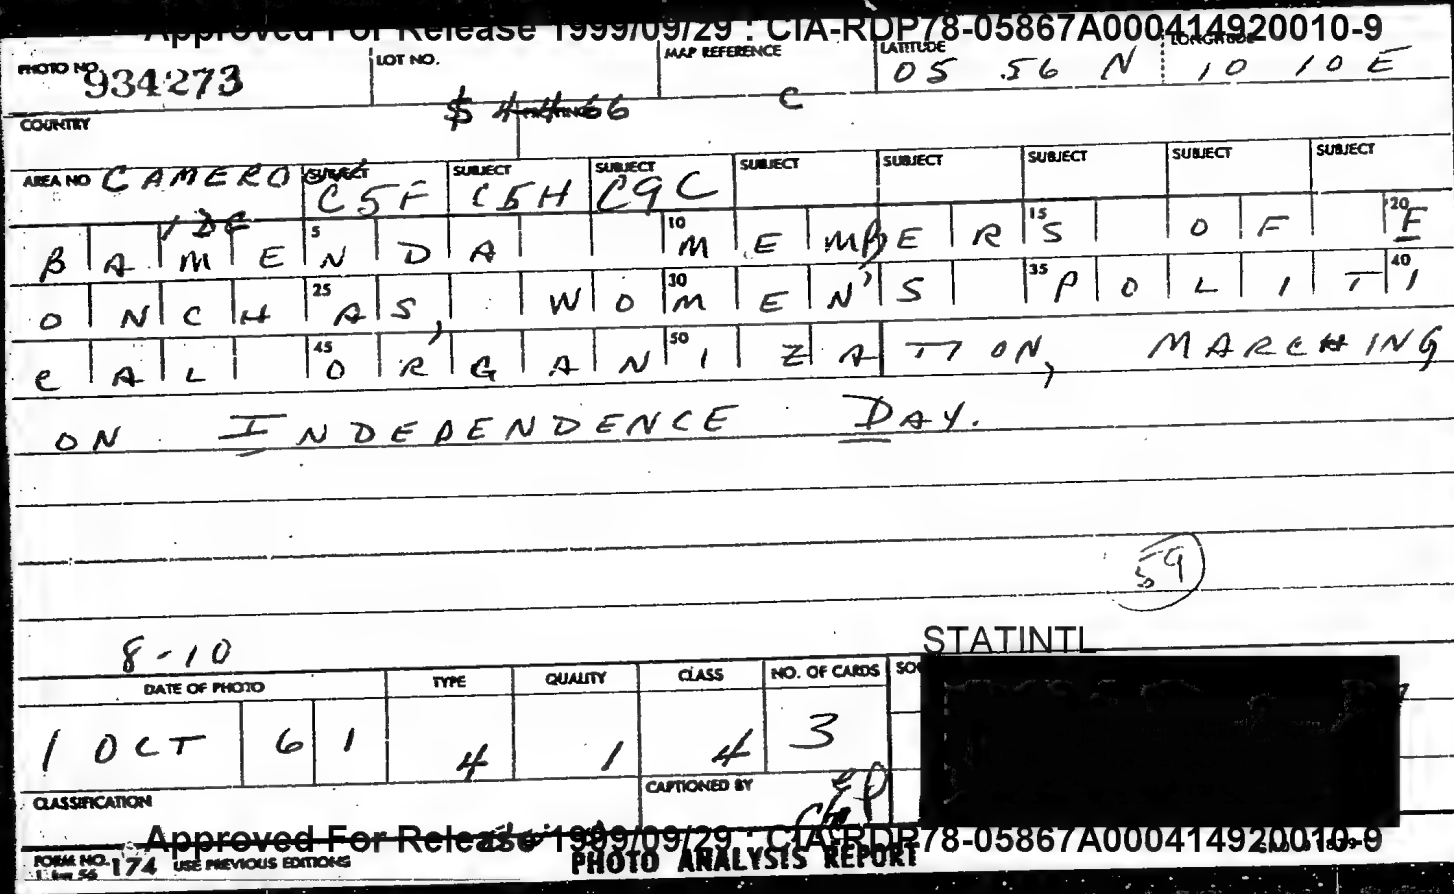 Approved For Release 1999/09/29 : CIA-RDP78-05867A000414920010-9
PHOTO NO. 934273 LOT NO. MAP REFERENCE LATITUDE 05 56 N LONGITUDE 10 10 E
COUNTRY $ 4466 C
AREA NO CAMEROON SUBJECT C5F SUBJECT C5H SUBJECT C9C SUBJECT SUBJECT SUBJECT SUBJECT SUBJECT
1DC
BAMENDA MEMBERS OF F
5 10 15 20
ONCHAS, WOMEN'S POLITI
25 30 35 40
CAL ORGANIZATION, MARCHING
45 50
ON INDEPENDENCE DAY.
59
8-10 STATINTL
DATE OF PHOTO TYPE QUALITY CLASS NO. OF CARDS
1 OCT 61 4 1 4 3
CLASSIFICATION CAPTIONED BY
Approved For Release 1999/09/29 : CIA-RDP78-05867A000414920010-9
FORM NO. 174 USE PREVIOUS EDITIONS PHOTO ANALYSIS REPORT